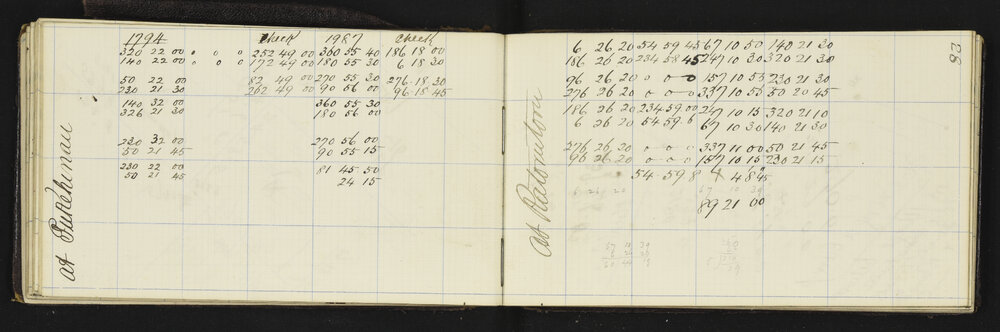 1794 Check 1987 Check
320 22 00 0 0 0 252 49 00 360 55 40 186 18 00
140 22 00 0 0 0 172 49 00 180 55 30 6 18 30
50 22 00 82 49 00 270 55 30 276 18 30
230 21 30 262 49 00 90 56 00 96 18 45
140 32 00 360 55 30
326 21 30 180 56 00
230 32 00 270 56 00
50 21 45 90 55 15
230 22 00 81 45 50
50 21 45 24 15
at Pukehinau
28
6 26 20 54 59 45 67 10 50 140 21 30
186 26 20 234 58 45 247 10 30 320 21 30
96 26 20 0 0 0 157 10 55 230 21 30
276 26 20 0 0 0 337 10 55 50 20 45
186 26 20 234 59 00 247 10 15 320 21 10
6 26 20 54 59 6 67 10 30 140 21 30
276 26 20 0 0 0 337 11 00 50 21 45
96 26 20 0 0 0 157 10 15 230 21 15
54 59 8
6 26 20 67 10 39
89 21 00
67 10 39
6 26 20